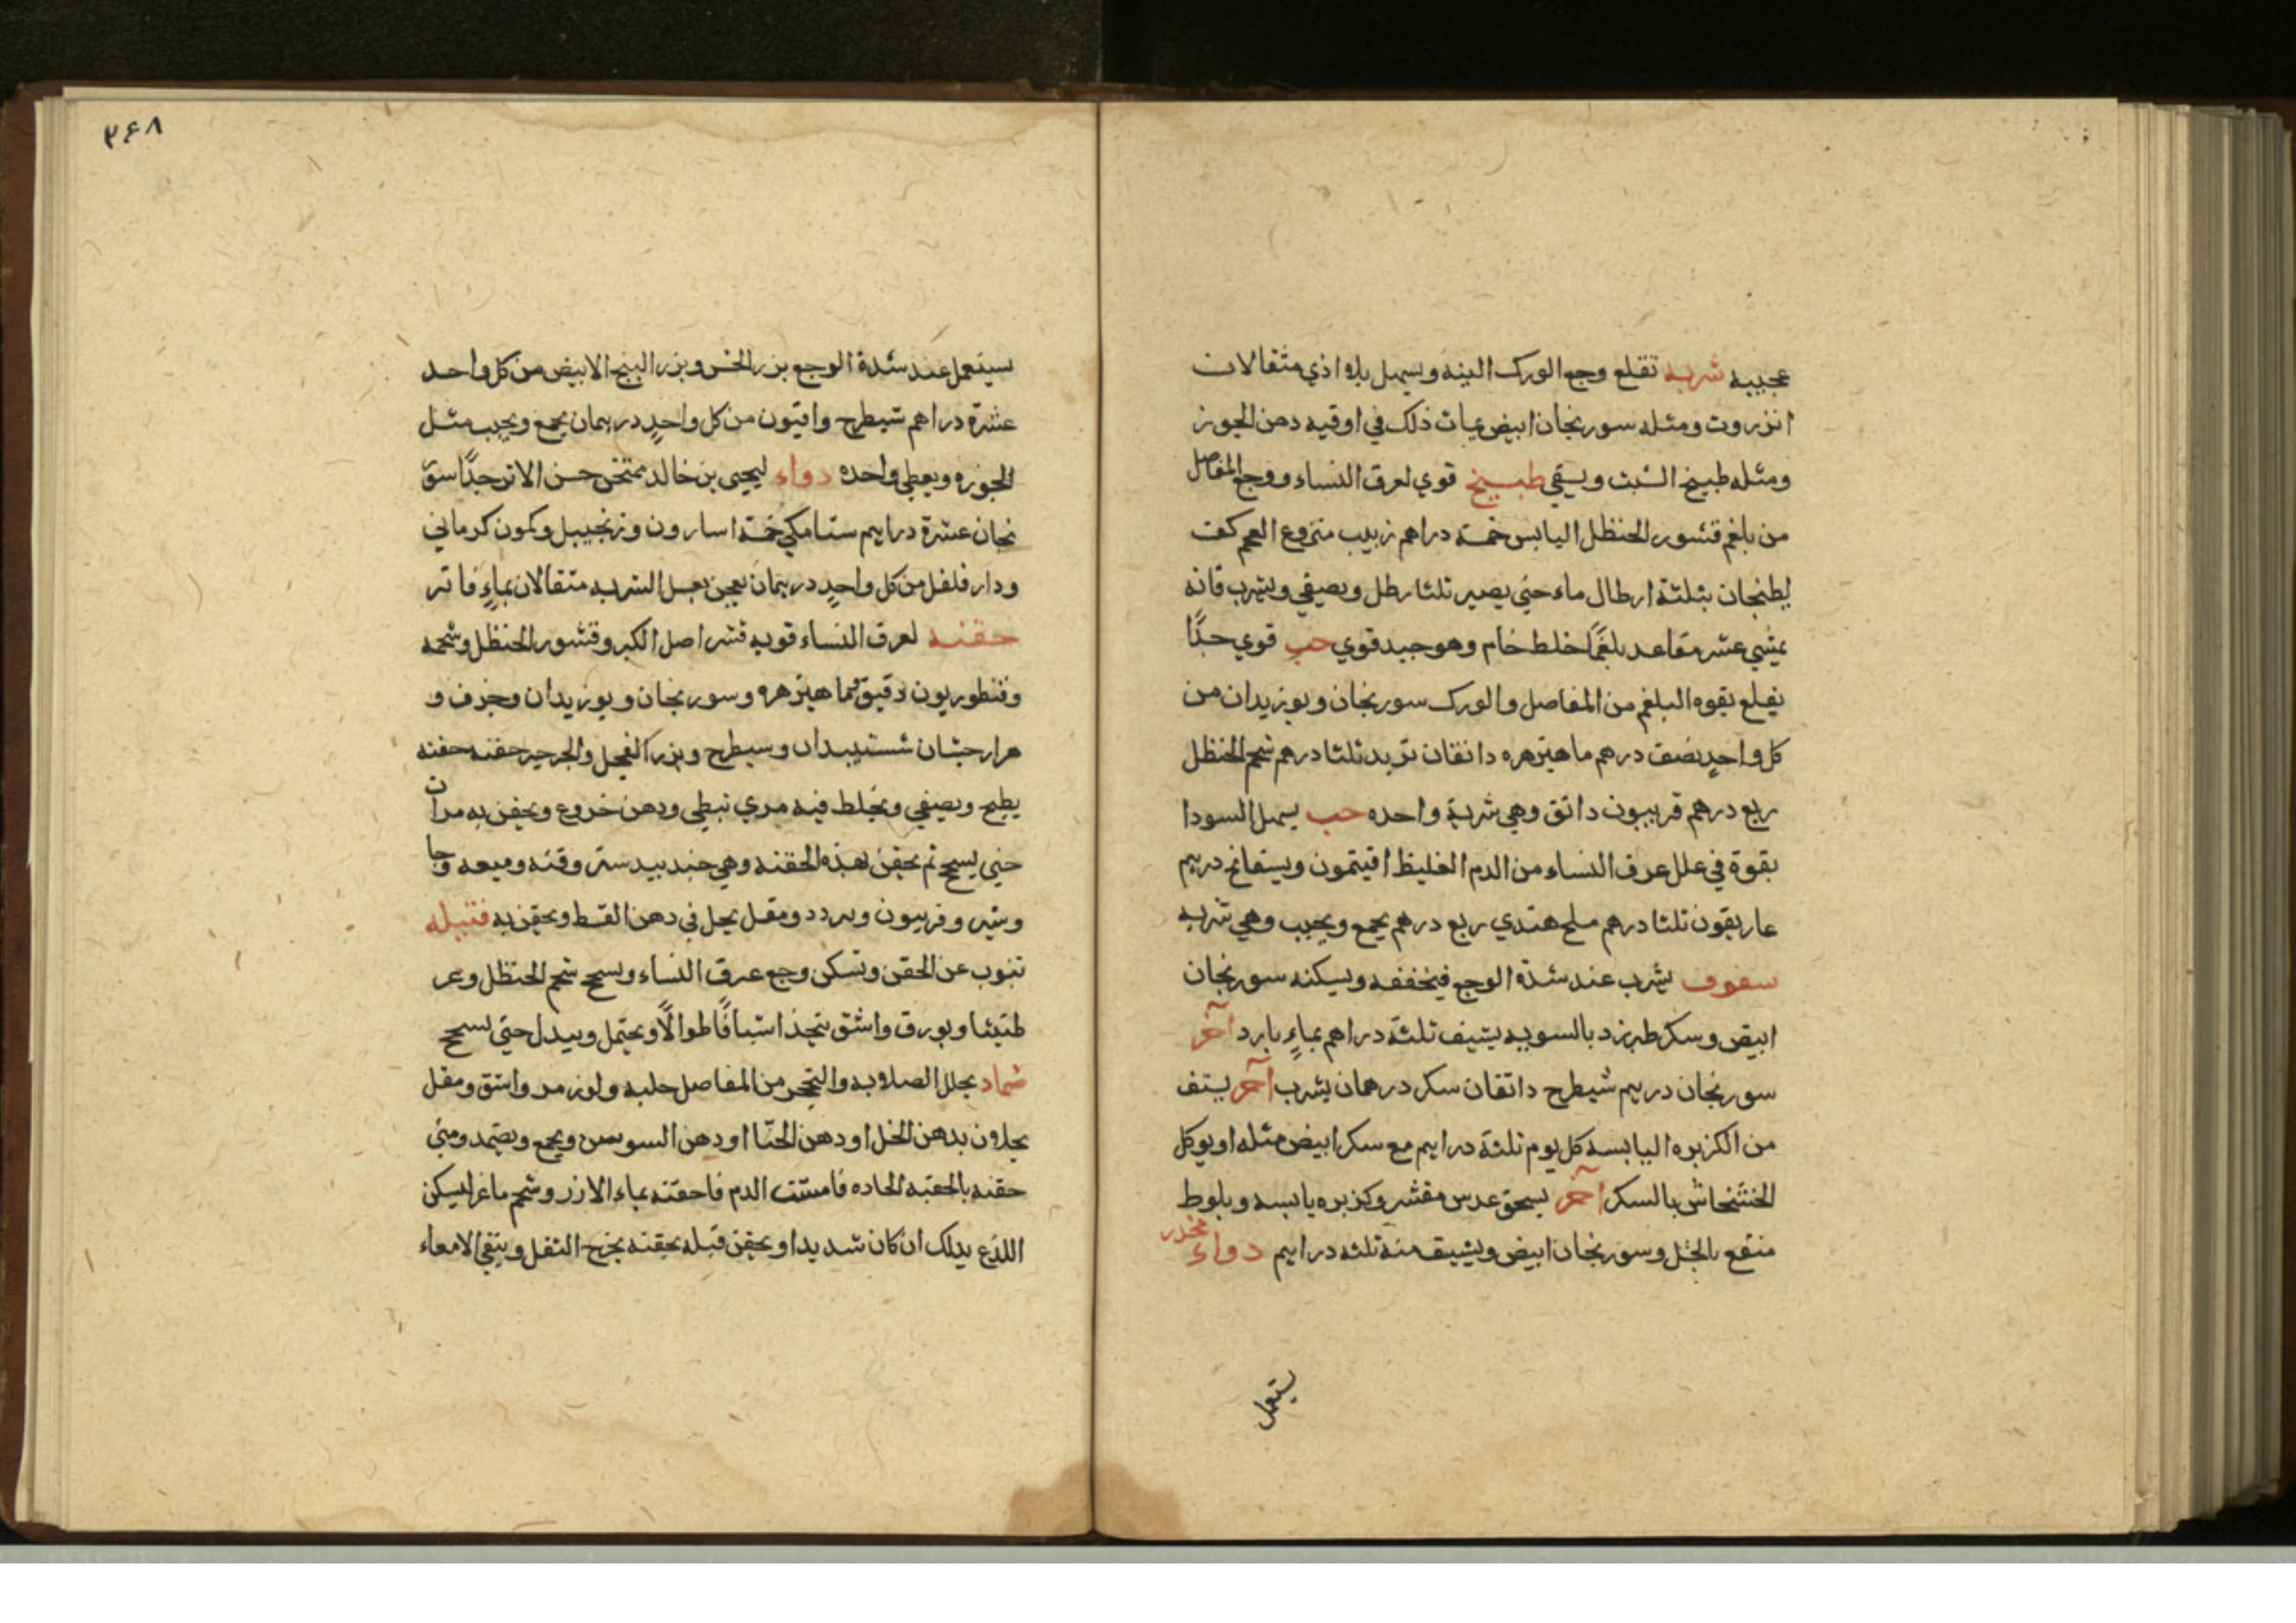 عجيبه شربه تقلع وجع الورك البته ويسهل بلا اذي مثقالان
انزروت ومثله سورنجان ابيض يمات ذلك في اوقيه دهن الجوز
ومثله طبيخ الشبت ويسقي طبيخ قوي لعرق النساء ووجع المفاصل
من بلغم قشور الحنظل اليابس خمسة دراهم زبيب منزوع العجم كف
يطبخان بثلثة ارطال ماء حتي يصير ثلثا رطل ويصفي ويشرب فانه
يمشي عشر مقاعد بلغمًا خلط خام وهو جيد قوي حب قوي جدًا
يقلع بقوه البلغم من المفاصل والورك سورنجان وبوزيدان من
كل واحدٍ نصف درهم ماهيزهره دانقان تربد ثلثا درهم شحم الحنظل
ربع درهم فربيون دانق وهي شربة واحده حب يسهل السودا
بقوة في علل عرق النساء من الدم الغليظ افيتمون وبسفانج درهم
غاريقون ثلثا درهم ملح هندي ربع درهم يجمع ويحبب وهي شربه
سفوف يشرب عند شدة الوجع فيخففه ويسكنه سورنجان
ابيض وسكر طبرزد بالسويه يستف ثلثة دراهم بماءٍ بارد آخر
سورنجان درهم شيطرج دانقان سكر درهمان يشرب آخر يستف
من الكزبره اليابسه كل يوم ثلثة دراهم مع سكر ابيض مثله او يوكل
الخشخاش بالسكر آخر يسحق عدس مقشر وكزبره يابسه وبلوط
منقع بالخل وسورنجان ابيض ويستف منه ثلثه دراهم دواء مخدر
يستعمل
٣٤٨
يستعمل عند شدة الوجع بزر الخس وبزر البنج الابيض من كل واحد
عشرة دراهم شيطرج وافيون من كل واحدٍ درهمان يجمع ويحبب مثل
الجوزه ويعطي واحده دواء ليحيى بن خالد ممتحن حسن الاثر جدًا سور
نجان عشرة دراهم سنا مكي خمسة اسارون وزنجبيل وكمون كرماني
ودارفلفل من كل واحدٍ درهمان يعجن بعسل الشربه مثقالان بماءٍ فاتر
حقنه لعرق النساء قويه قشر اصل الكبر وقشور الحنظل وشحمه
وقنطوريون دقيق وماهيزهره وسورنجان وبوزيدان وحرف و
هزارجشان وسيطرج وبزر الفجل والجرجير حفنه حفنه
يطبخ ويصفي ويخلط فيه مري نبطي ودهن خروع ويحقن به مرات
حتي يسحج ثم يحقن بهذه الحقنه وهي جندبيدستر وقنه وميعه وجا
وشير وفربيون ومقل يحل في دهن القسط ويحقن به فتيله
تنوب عن الحقن وتسكن وجع عرق النساء ويسحج شحم الحنظل وعر
طنيثا وبورق واشق يتخذ اشيافًا طوالًا ويحتمل ويبدل حتي يسحج
ضماد يحلل الصلابه والتحجر من المفاصل حلبه ولوز مر واشق ومقل
يحلون بدهن الخل او دهن الحنّا او دهن السوسن ويجمع ويضمد ومتي
حقنه بالحقنه الحاده فامشت الدم فاحقنه بماء الارز وشحم ماعز ليسكن
اللذع بذلك ان كان شديدا ويحقن قبله بحقنه يخرج الثفل وينقي الامعاء